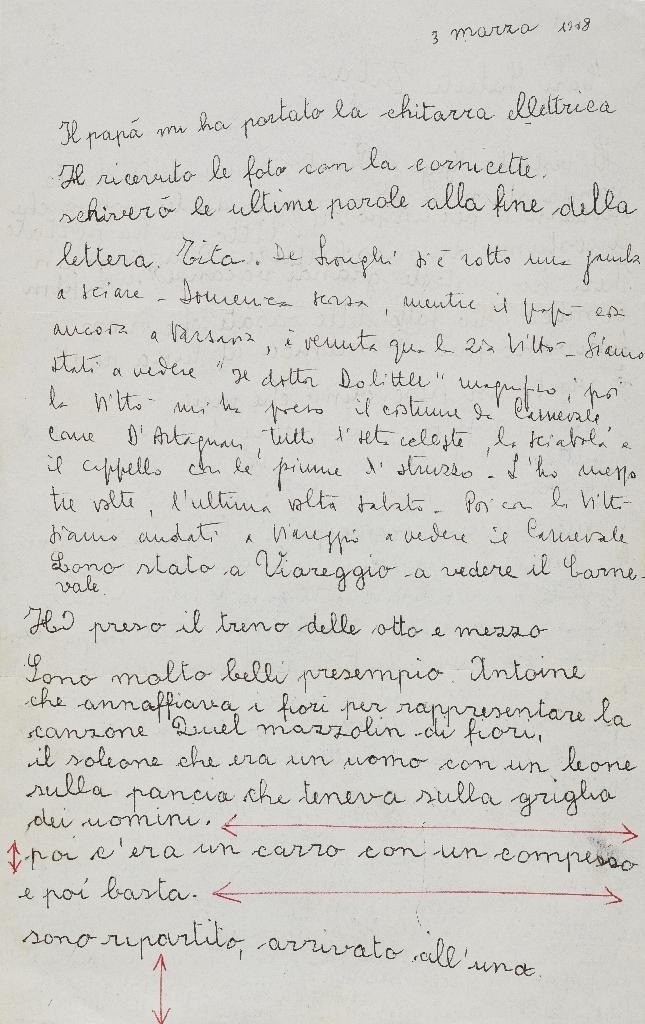 3 marzo 1968
Il papá mi ha portato la chitarra ellettrica
Ho ricevuto le foto con la cornicette.
schiveró le ultime parole alla fine della
lettera. Tita. De Longhi s'è rotto una gamba
a sciare - Domenica scorsa, mentre il papà era
ancora a Varsavia, è venuta qua la zia Vitto - Siamo
stati a vedere "il dottor Dolittle" magnifico, poi
la Vitto mi ha preso il costume da Carnevale
come D'Artagnan, tutto di seta celeste, la sciabola e
il cappello con le piume di struzzo - L'ho messo
tre volte, l'ultima volta sabato - Poi con la Vitto
siamo andati a Viareggio a vedere il Carnevale
Sono stato a Viareggio a vedere il Carne-
vale.
Ho preso il treno delle otto e mezzo
Sono molto belli presempio. Antoine
che annaffiava i fiori per rappresentare la
canzone Quel mazzolin di fiori,
il soleone che era un uomo con un leone
sulla pancia che teneva sulla griglia
dei uomini.
poi c'era un carro con un compesso
e poi basta.
sono ripartito, arrivato all'una.